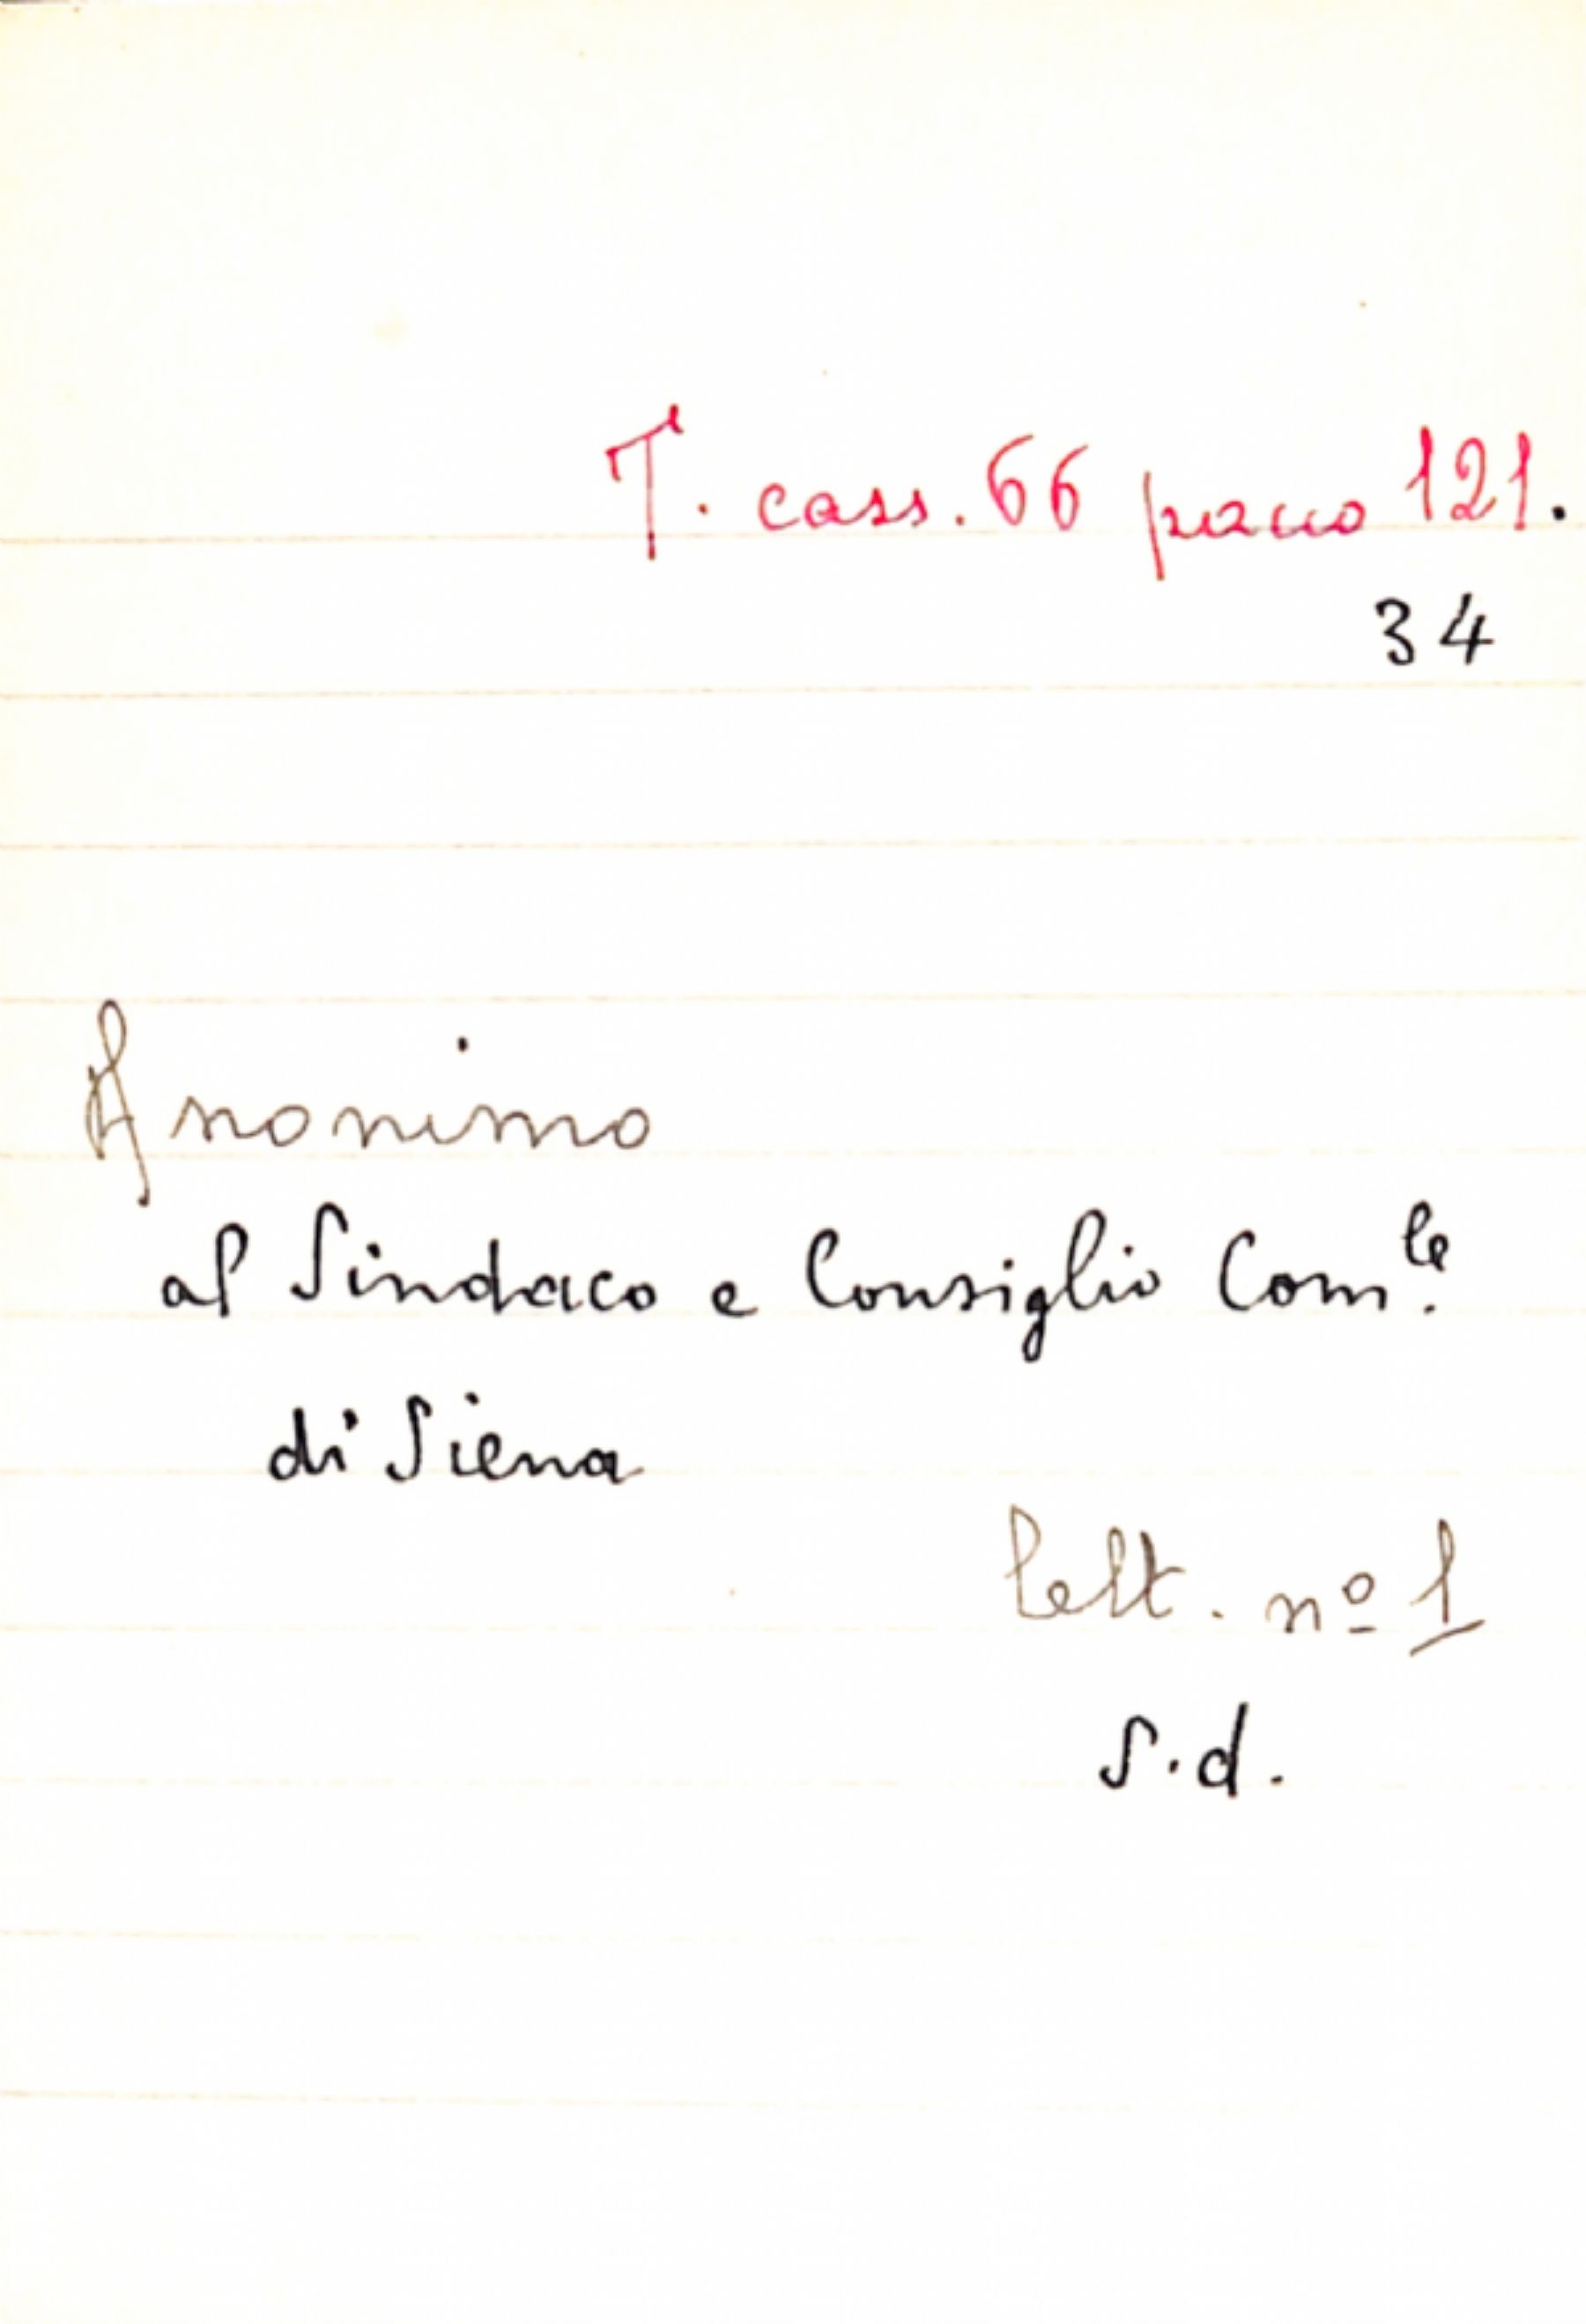 T. cass. 66 pacco 121.
34
Anonimo
al Sindaco e Consiglio Com.le
di Siena
lett. nº 1
S.d.